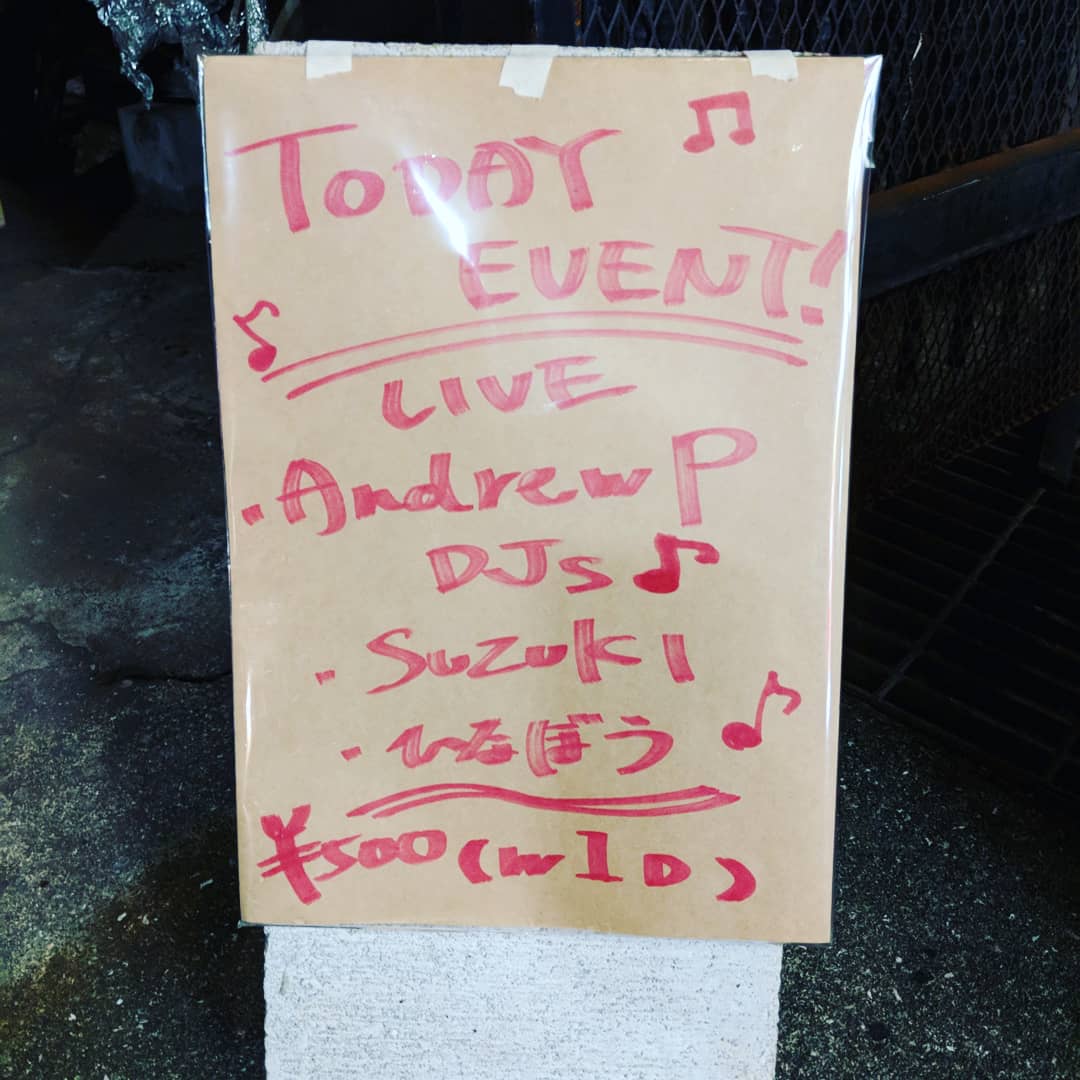 TODAY
EVENT!
LIVE
・Andrew P
DJs
・SUZUKI
・ひなぼう
¥500(w1D)